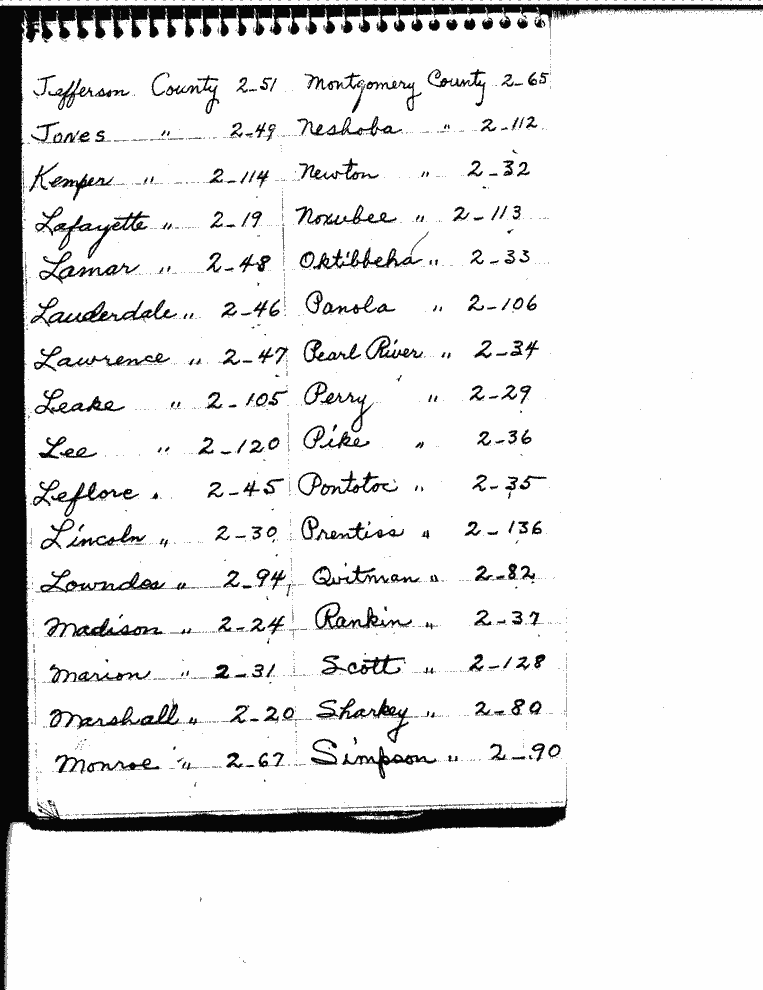 Jefferson County 2-51
Jones " 2-49
Kemper " 2-114
Lafayette " 2-19
Lamar " 2-48
Lauderdale " 2-46
Lawrence " 2-47
Leake " 2-105
Lee " 2-120
Leflore " 2-45
Lincoln " 2-30
Lowndes " 2-94
Madison " 2-24
Marion " 2-31
Marshall " 2-20
Monroe " 2-67
Montgomery County 2-65
Neshoba " 2-112
Newton " 2-32
Noxubee " 2-113
Oktibbeha " 2-33
Panola " 2-106
Pearl River " 2-34
Perry " 2-29
Pike " 2-36
Pontotoc " 2-35
Prentiss " 2-136
Quitman " 2-82
Rankin " 2-37
Scott " 2-128
Sharkey " 2-80
Simpson " 2-90